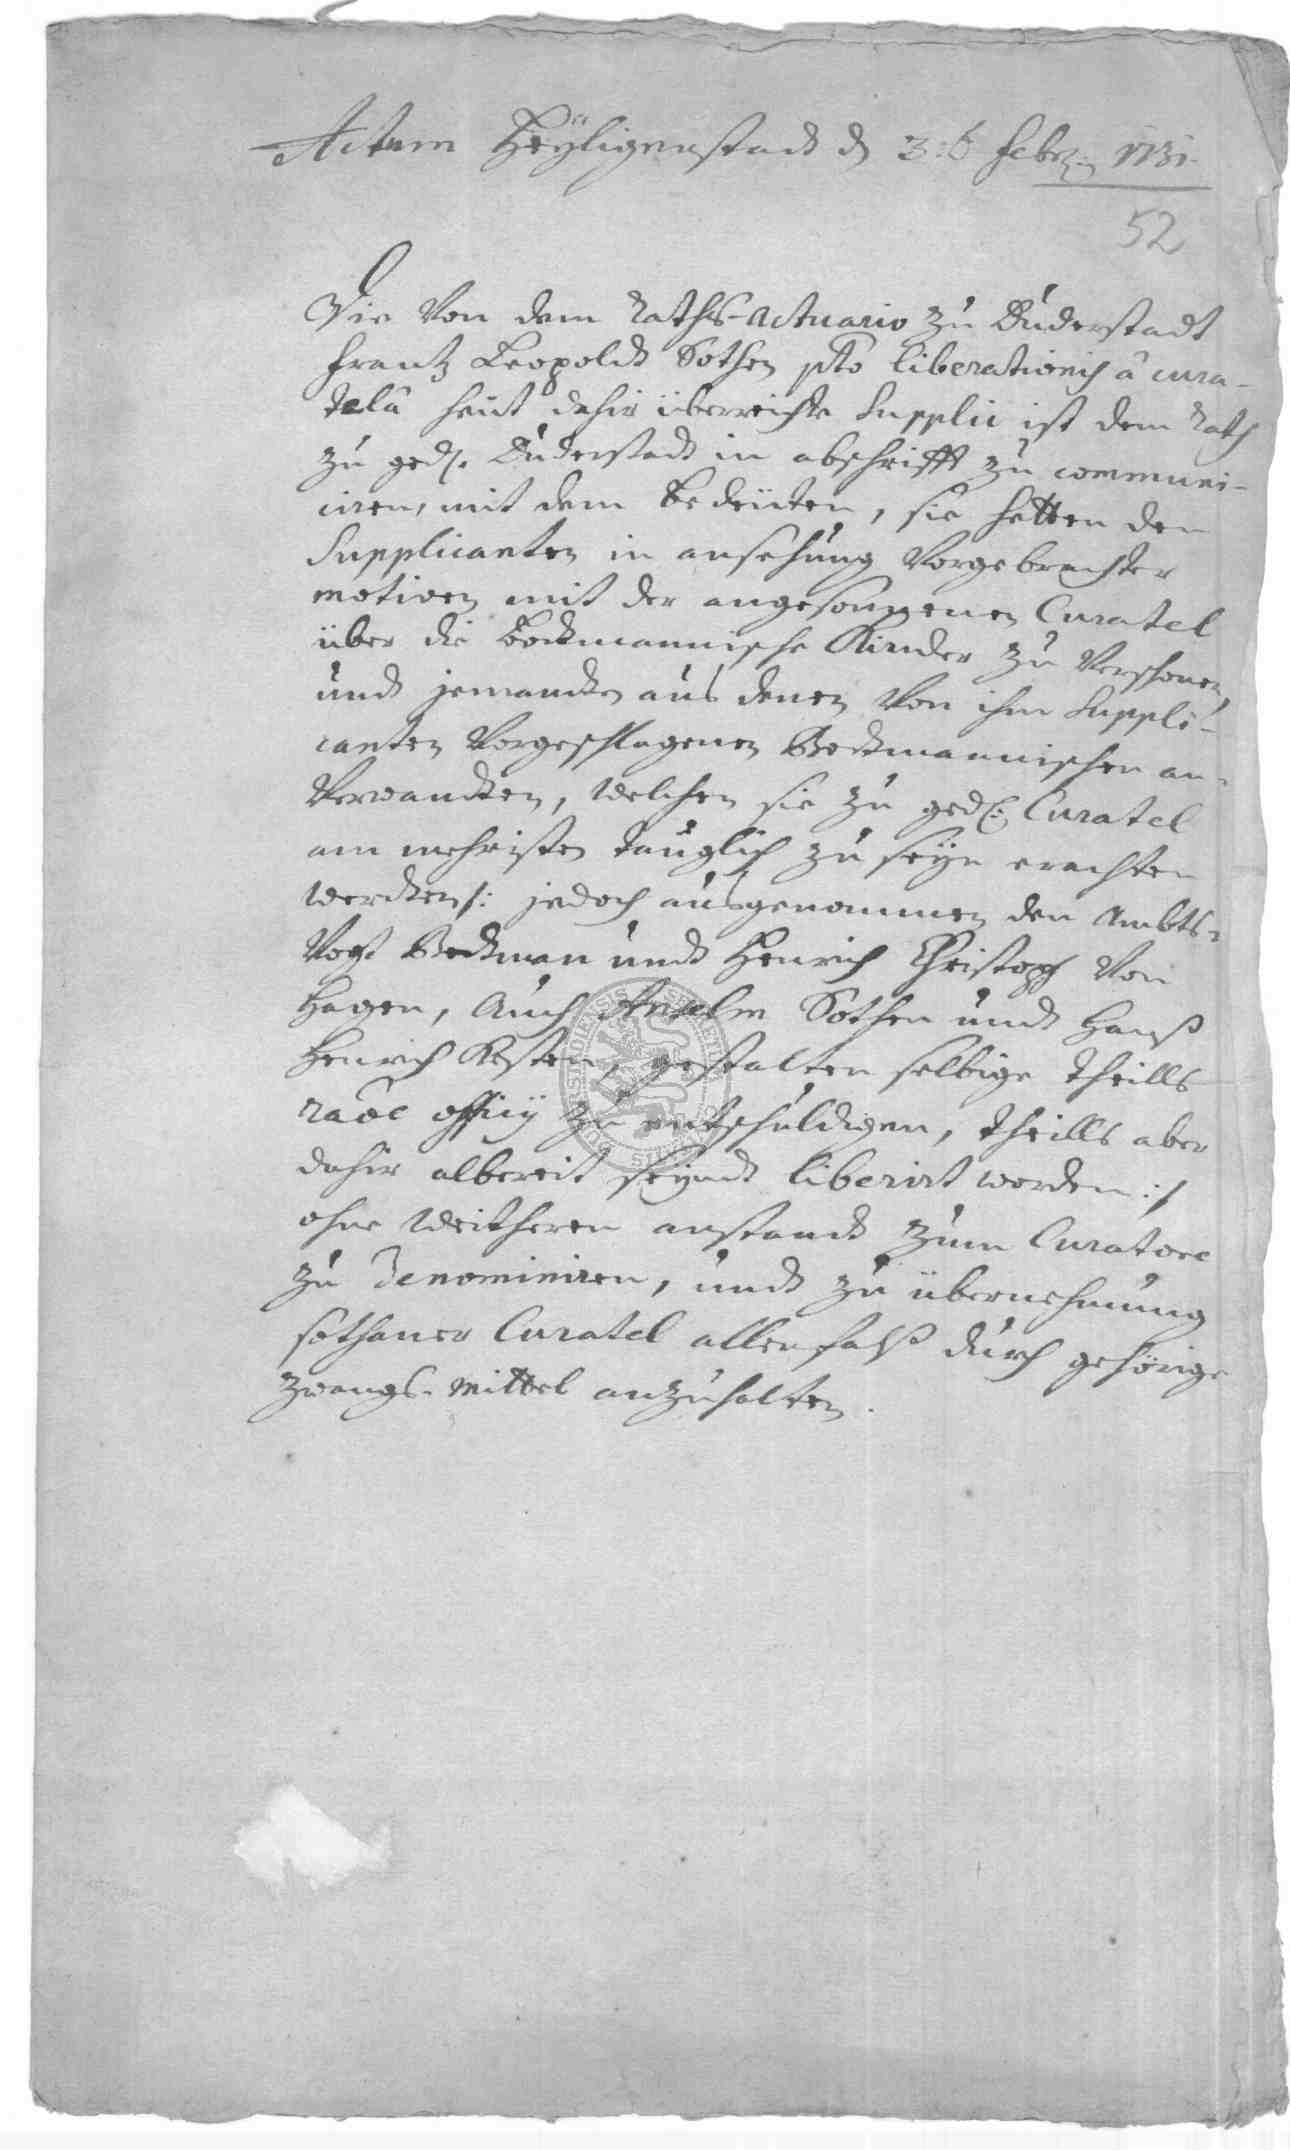 Actum Heyligenstadt d 3:t Febr: 1731.
52
Die von dem Raths-Actuario zu Duderstadt
Frantz Leopoldt Sothen pto liberationis à cura-
telâ heut dahir überreichte Supplic ist dem Rath
zu gedl. Duderstadt in abschrifft zu communi-
ciren, mit dem bedeüten, sie hetten den
Supplicanten in ansehung vorgebrachter
motiven mit der angesonnenen Curatel
über die Bockmannische Kinder zu verschonen,
undt jemandten aus denen von ihm Suppli-
canten vorgeschlagenen Bockmannischen an-
verwandten, welchen sie zu gedl: Curatel
am mehristen tauglich zu seyn erachten
werdten /: jedoch ausgenommen den Ambts-
Vogt Bockman undt Henrich Christoph von
Hagen, auch Anselm Sothen undt Hanß
Henrich Kesten, gestalten selbige theills
raoe officij zu entschuldigen, theills aber
dahir albereit seyndt liberirt worden :/
ohne weitheren anstandt zum Curatore
zu denominiren, undt zu übernehmung
sothaner Curatel allenfalß durch gehörige
zwangs-mittel anzuhalten.